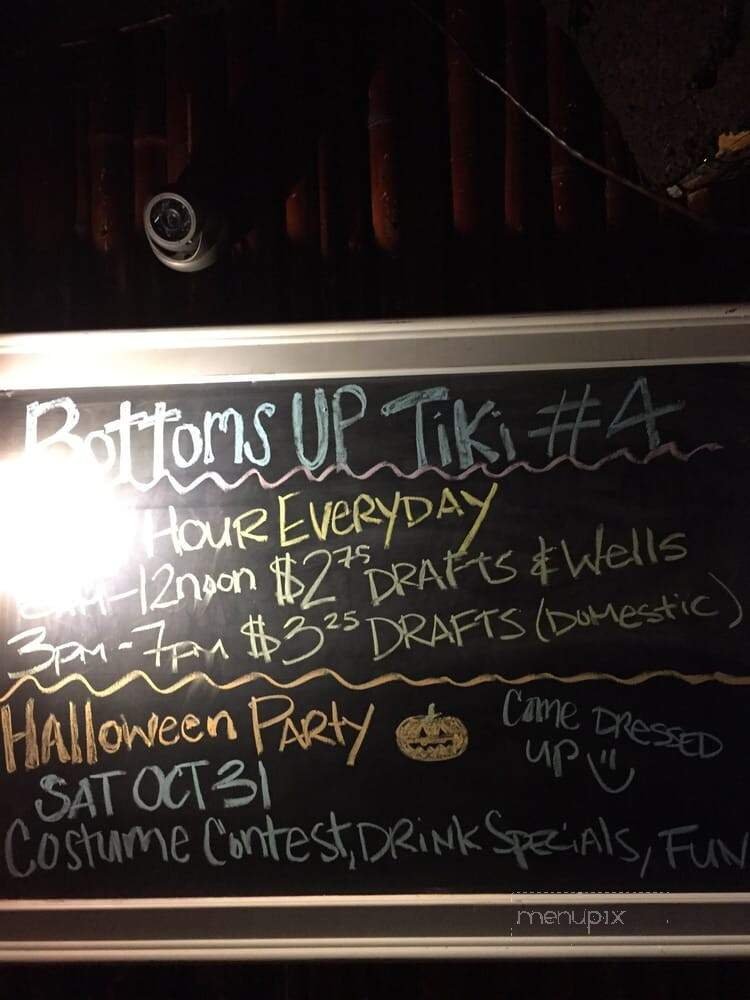 Bottoms UP Tiki #4
HOUR EVERYDAY
-12noon $2.75 DRAFTS & Wells
3pm-7pm $3.25 DRAFTS (DOMESTIC)
HAlloween PARTY
Come DRESSED
UP
SAT OCT 31
Costume Contest, DRINK SPECiAls, FUN
menupix